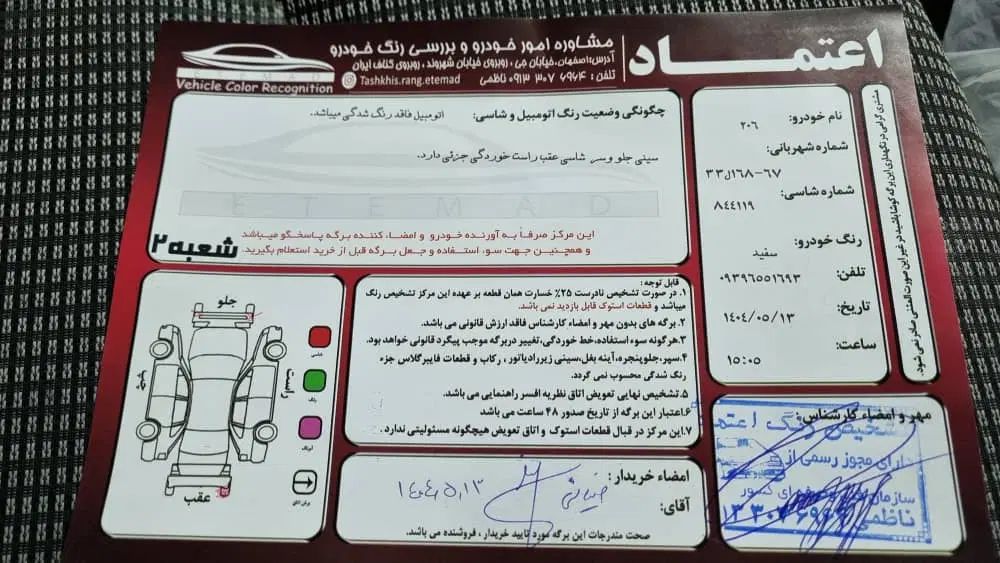 اعتماد
مشاوره امور خودرو و بررسی رنگ خودرو
آدرس:اصفهان، خیابان جی ، روبروی خیابان شهروند، روبروی گلف ایران
تلفن : ۶۹۶۴ ۳۰۷ ۰۹۱۳ ناظمی
Tashkhis.rang.etemad
ETEMAD
Vehicle Color Recognition
مشتری گرامی در نگهداری این برگه کوشا باشید در غیر این صورت المثنی صادر نمی شود
نام خودرو:
۲۰۶
شماره شهربانی:
۶۷-۱۶۸ل۳۳
شماره شاسی:
۸۴۴۱۱۹
رنگ خودرو:
سفید
تلفن:
۰۹۳۹۶۵۵۱۶۹۳
تاریخ:
۱۴۰۴/۰۵/۱۳
ساعت:
۱۵:۰۵
چگونگی وضعیت رنگ اتومبیل و شاسی: اتومبیل فاقد رنگ شدگی میباشد.
سینی جلو وسر شاسی عقب راست خوردگی جزئی دارد.
ETEMAD
این مرکز صرفاً به آورنده خودرو و امضاء کننده برگه پاسخگو میباشد
و همچنین جهت سوء استفاده و جعل برگه قبل از خرید استعلام بگیرید.
شعبه ۲
قابل توجه:
۱. در صورت تشخیص نادرست ۲۵٪ خسارت همان قطعه بر عهده این مرکز تشخیص رنگ
میباشد و قطعات استوک قابل بازدید نمی باشد.
۲. برگه های بدون مهر و امضاء کارشناس فاقد ارزش قانونی می باشد.
۳.هرگونه سوء استفاده، خط خوردگی، تغییر دربرگه موجب پیگرد قانونی خواهد بود.
۴.سپر،جلوپنجره، آینه بغل،سینی زیررادیاتور ، رکاب و قطعات فایبرگلاس جزء
رنگ شدگی محسوب نمی گردد.
۵.تشخیص نهایی تعویض اتاق نظریه افسر راهنمایی می باشد.
۶.اعتبار این برگه از تاریخ صدور ۴۸ ساعت می باشد
۷.این مرکز در قبال قطعات استوک و اتاق تعویض هیچگونه مسئولیتی ندارد.
جلو
چپ
راست
عقب
رنگ
امضاء خریدار:
آقای:
۱۴۰۴،۵،۱۳
صحت مندرجات این برگه مورد تایید خریدار ، فروشنده می باشد.
مهر و امضاء کارشناس:
تشخیص رنگ اعتماد
دارای مجوز رسمی از
سازمان فنی و حرفه ای کشور
ناظمی